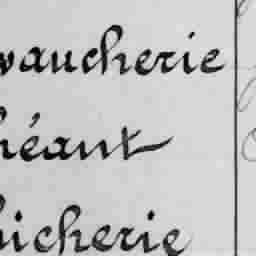 vaucherie
héant
hicherie